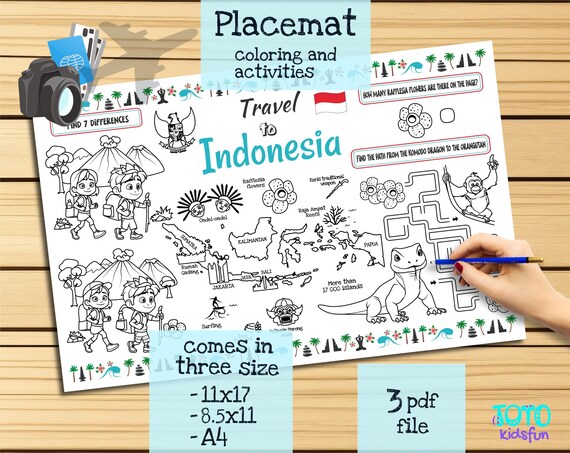 Placemat
coloring and
activities
HOW MANY RAFFLESIA FLOWERS ARE THERE ON THE PAGE?
FIND 7 DIFFERENCES
Travel
to
Indonesia
FIND THE PATH FROM THE KOMODO DRAGON TO THE ORANGUTAN
Rafflesia
flowers
Keris traditional
weapon
Ondel-ondel
Raja Ampat
KALIMANTAN
PAPUA
Rumah
Gadang
JAKARTA
BALI
JAVA
More than
17 000 islands
Surfing
comes in
three size
-11x17
-8.5x11
-A4
3 pdf
file
TOTO
kidsfun